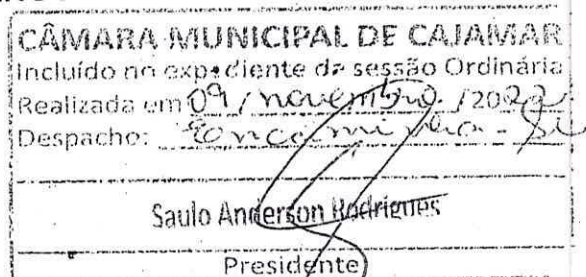 CÂMARA MUNICIPAL DE CAJAMAR
Incluído no expediente da sessão Ordinária
Realizada em 09 / novembro / 2022
Despacho: Encaminha-se
Saulo Anderson Rodrigues
Presidente